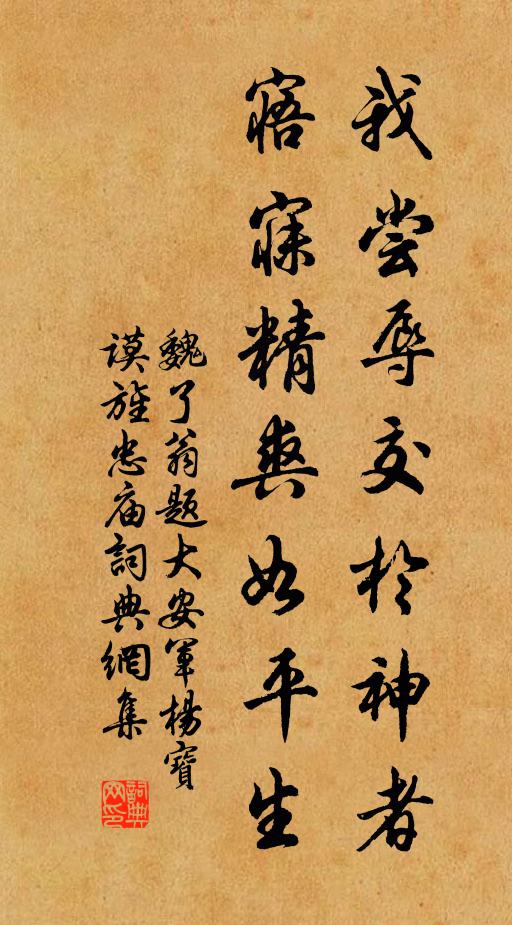 我尝辱交於神者
寤寐精爽如平生
魏了翁题大安军杨寶
谟旌忠庙詞典網集
詞典网印